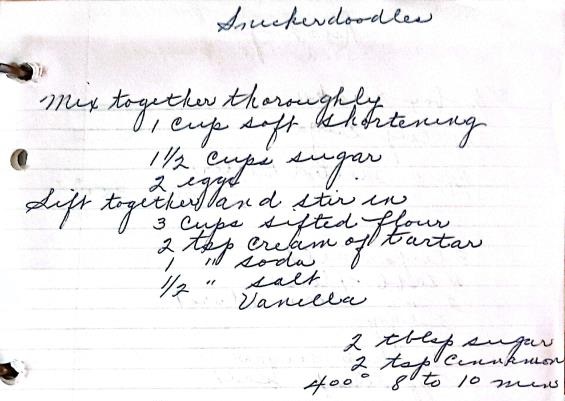 Snickerdoodles
Mix together thoroughly
1 cup soft shortening
1 1/2 cups sugar
2 eggs
Sift together and stir in
3 cups sifted flour
2 tsp cream of tartar
1 " soda
1/2 " salt
Vanilla
2 tblsp sugar
2 tsp Cinnamon
400° 8 to 10 min